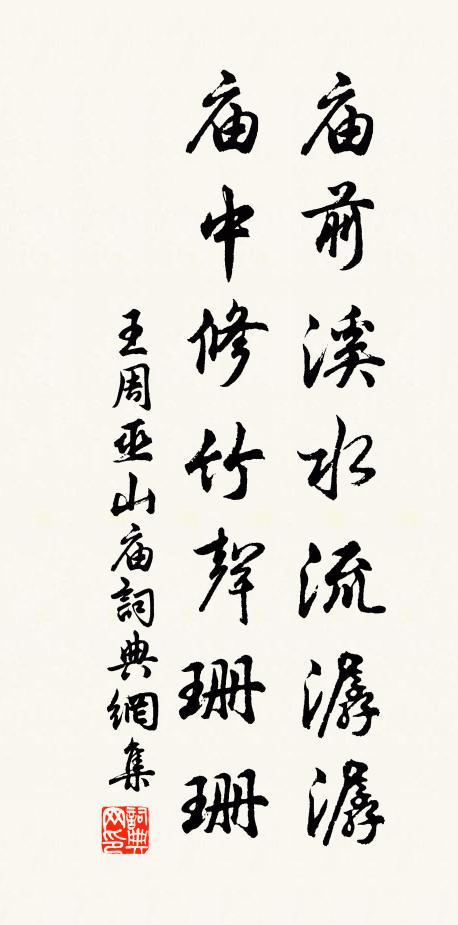 庙前溪水流潺潺
庙中修竹聲珊珊
王周巫山庙詞典網集
詞典网印